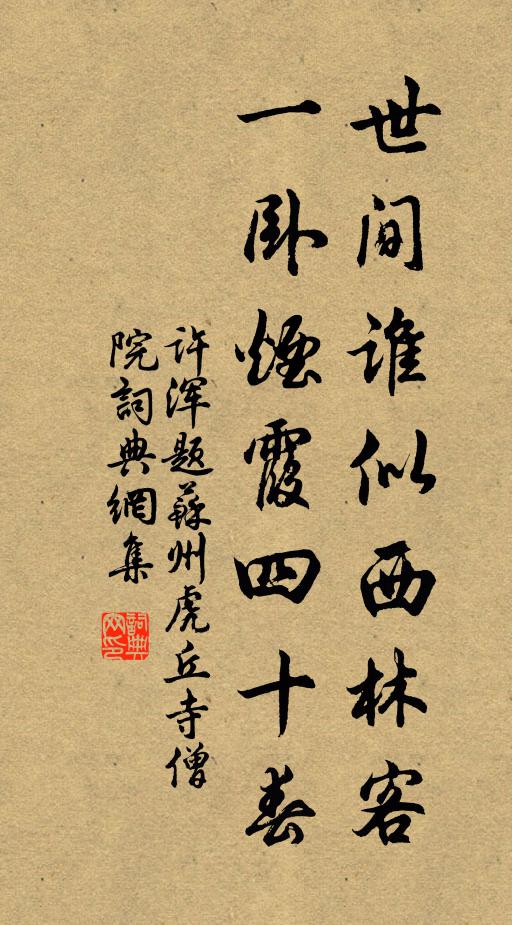 世间谁似西林客
一卧煙霞四十春
许渾题蘇州虎丘寺僧
院詞典網集
詞典網印